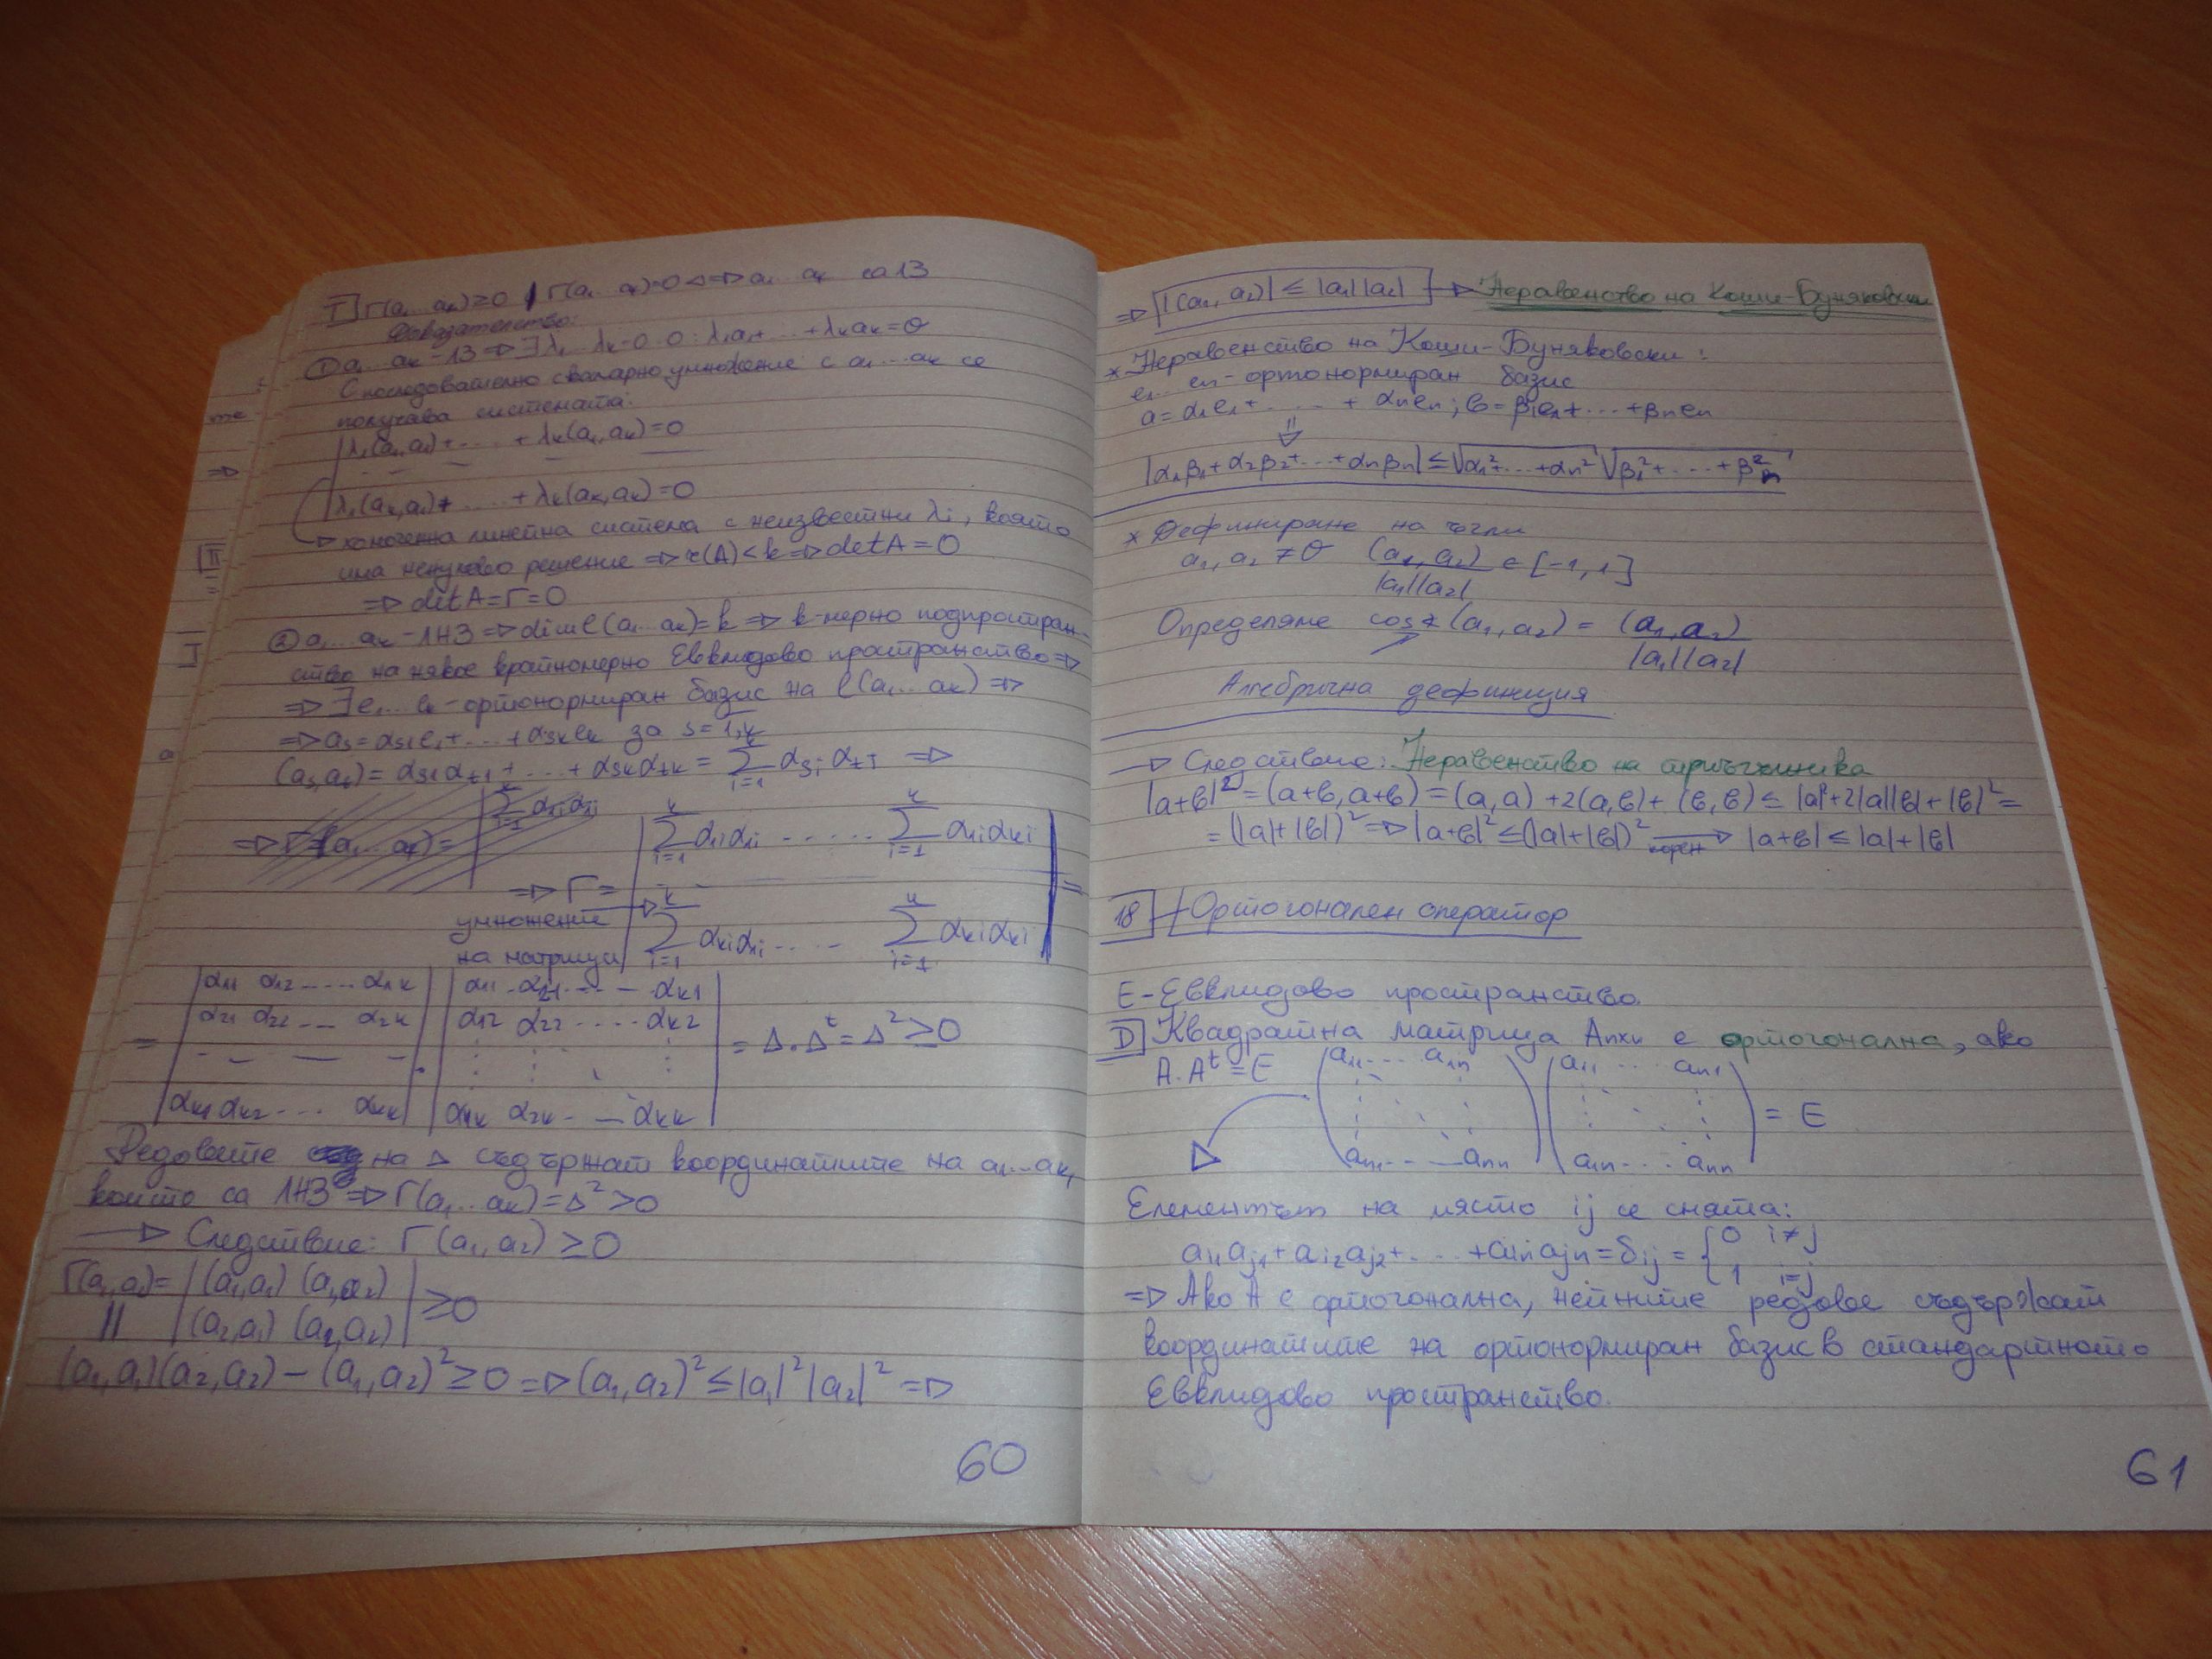 T Γ(a₁...aₖ) ≥ 0 , Γ(a₁...aₖ)=0 <=> a₁...aₖ са ЛЗ
Доказателство:
① a₁...aₖ - ЛЗ => ∃ λ₁...λₖ ≠ 0...0 : λ₁a₁+...+λₖaₖ=θ
С последователно скаларно умножение с a₁...aₖ се
получава системата:
λ₁(a₁,a₁)+.... + λₖ(a₁,aₖ)=0
λ₁(aₖ,a₁)+ .... +λₖ(aₖ,aₖ)=0
хомогенна линейна система с неизвестни λi, която
има ненулево решение => r(A)<k => detA=0
=> detA=Γ=0
② a₁...aₖ - ЛНЗ => dim ℓ(a₁...aₖ)=k => k-мерно подпростран-
ство на някое крайномерно Евклидово пространство =>
=> ∃ e₁...eₖ - ортонормиран базис на ℓ(a₁...aₖ) =>
=> as=αs₁e₁+...+αsₖeₖ за s=1,k
(as,at)= αs1αt1+...+αskαtk= ∑ᵢ₌₁ᵏ αsiαti =>
=> Γ = | ∑ᵢ₌₁ᵏ α₁ᵢα₁ᵢ ...... ∑ᵢ₌₁ᵏ α₁ᵢαₖᵢ
умножение
на матрици ∑ᵢ₌₁ᵏ αₖᵢα₁ᵢ ..... ∑ᵢ₌₁ᵏ αₖᵢαₖᵢ | =
= | α₁₁ α₁₂ ..... α₁ₖ | . | α₁₁ α₂₁ ..... αₖ₁ |
α₂₁ α₂₂ ... α₂ₖ | α₁₂ α₂₂ ..... αₖ₂ | = Δ.Δᵗ = Δ² ≥ 0
αₖ₁ αₖ₂ .... αₖₖ | α₁ₖ α₂ₖ ... αₖₖ
Редовете на Δ съдържат координатите на a₁...aₖ,
които са ЛНЗ => Γ(a₁...aₖ)=Δ²>0
→ Следствие: Γ(a₁,a₂) ≥ 0
Γ(a₁,a₂)= | (a₁,a₁) (a₁,a₂) | ≥0
|| | (a₂,a₁) (a₂,a₂) |
(a₁,a₁)(a₂,a₂) – (a₁,a₂)² ≥ 0 => (a₁,a₂)² ≤ |a₁|²|a₂|² =>
60
=> |(a₁,a₂)| ≤ |a₁||a₂| → Неравенство на Коши-Буняковски
* Неравенство на Коши-Буняковски:
e₁...en - ортонормиран базис
a= α₁e₁+ ..... + αnen; b= β₁e₁+...+βnen
⇓
|α₁β₁+α₂β₂+...+αnβn| ≤ √α₁²+...+αn² √β₁²+...+βn²
* Дефиниране на ъгли
a₁,a₂ ≠ θ (a₁,a₂)/|a₁||a₂| ∈ [-1,1]
Определяме cos∢(a₁,a₂) = (a₁,a₂)/|a₁||a₂|
Алгебрична дефиниция
→ Следствие: Неравенство на триъгълника
|a+b|² = (a+b,a+b) = (a,a) +2(a,b)+ (b,b) ≤ |a|²+2|a||b|+|b|² =
= (|a|+|b|)² => |a+b|² ≤ (|a|+|b|)² корен→ |a+b| ≤ |a|+|b|
18 Ортогонален оператор
E - Евклидово пространство.
D Квадратна матрица Anxn е ортогонална, ако
A.Aᵗ=E ( a₁₁ ... a₁n ) ( a₁₁ ... an₁ )
= E
an₁ ... ann a₁n .... ann
Елементът на място ij се смята:
ai₁aj₁+ai₂aj₂+...+ainajn=δij = { 0 i≠j
1 i=j
=> Ако A е ортогонална, нейните редове съдържат
координатите на ортонормиран базис в стандартното
Евклидово пространство.
61